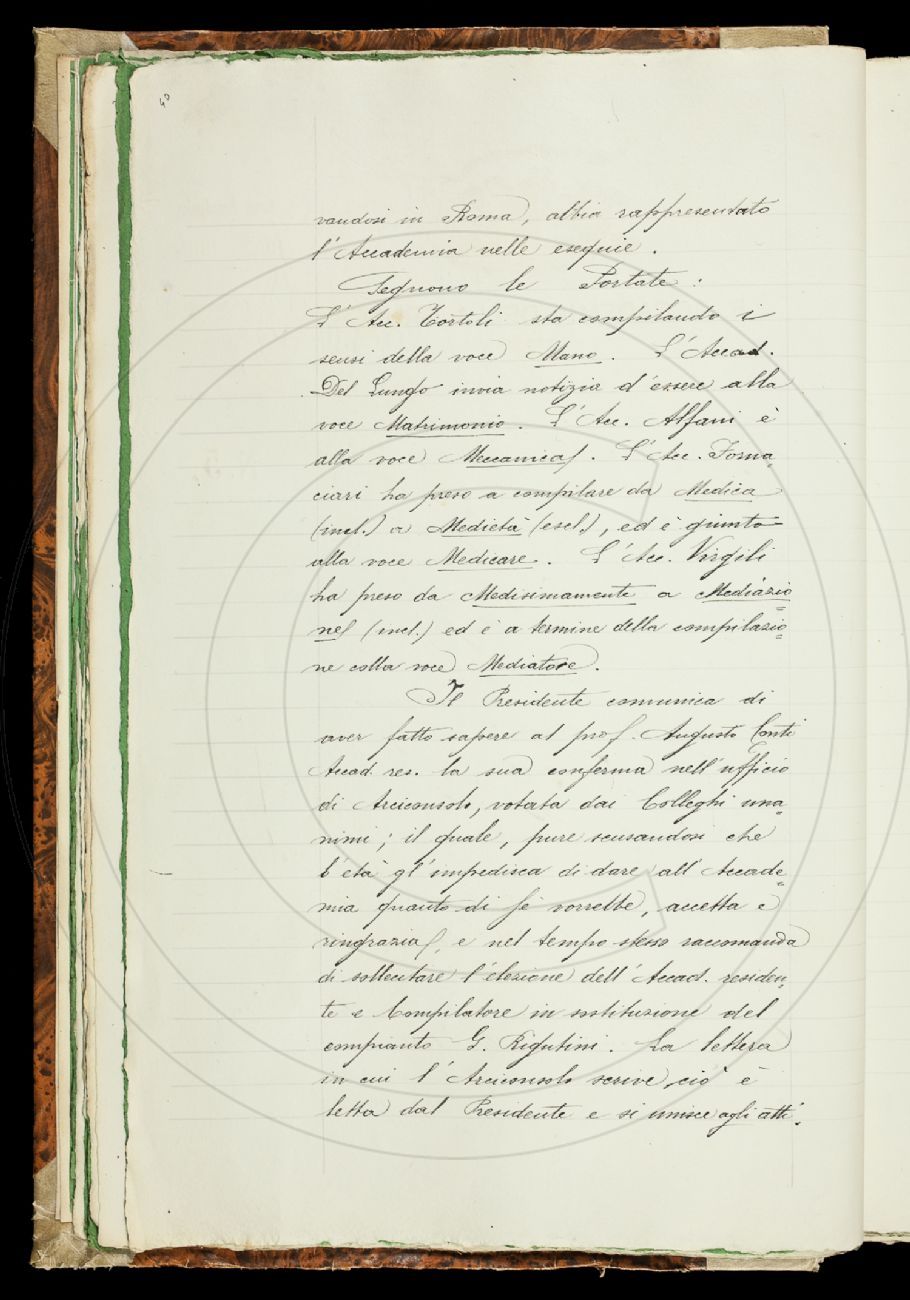 40
vandosi in Roma, abbia rappresentato
l'Accademia nelle esequie.
Seguono le Portate:
L'Acc. Tortoli sta compilando i
sensi della voce Mano. L'Accad.
Del Lungo invia notizia d'essere alla
voce Matrimonio. L'Acc. Alfani è
alla voce Meccanica. L'Acc. Forna„
ciari ha preso a compilare da Medica
(incl.) a Medietà (escl.), ed è giunto
alla voce Medicare. L'Acc. Virgili
ha preso da Medesimamente a Mediazio
ne (incl.) ed è a termine della compilazio
ne colla voce Mediatore.
Il Presidente comunica di
aver fatto sapere al prof. Augusto Conti
Accad. res. la sua conferma nell'ufficio
di Arciconsolo, votata dai Colleghi una„
nimi; il quale, pure scusandosi che
l'età gl'impedisca di dare all'Accade„
mia quanto di sè vorrebbe, accetta e
ringrazia, e nel tempo stesso raccomanda
di sollecitare l'elezione dell'Accad. residen„
te e Compilatore in sostituzione del
compianto G. Rigutini. La lettera
in cui l'Arciconsolo scrive ciò è
letta dal Presidente e si unisce agli atti.